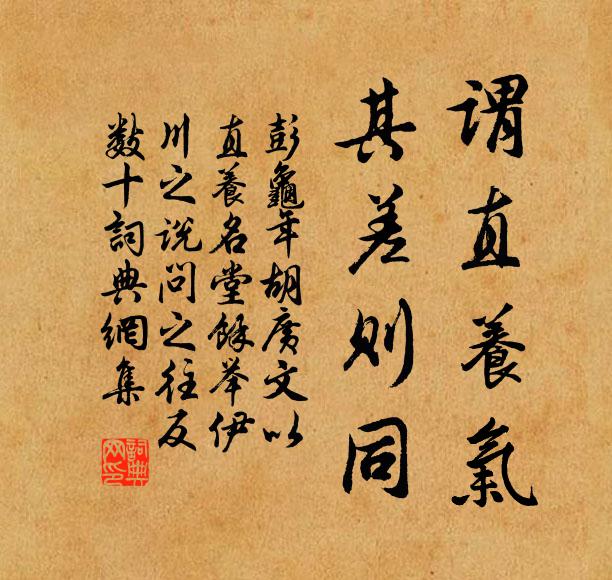 謂直養氣
其差則同
彭龜年胡廣文以
直養名堂餘举伊
川之说問之往反
數十詞典網集
詞典
网印